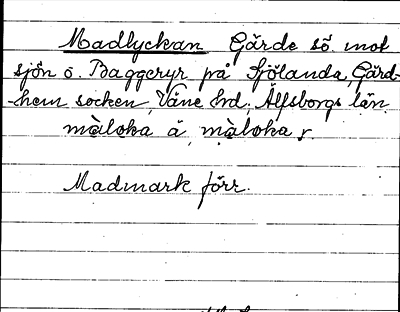 Madlyckan Gärde sö. mot
sjön ö. Baggeryr på Sjölanda, Gärd-
-hem socken, Väne hrd, Älfsborgs län.
màloka ä, màloka, r.
Madmark förr.